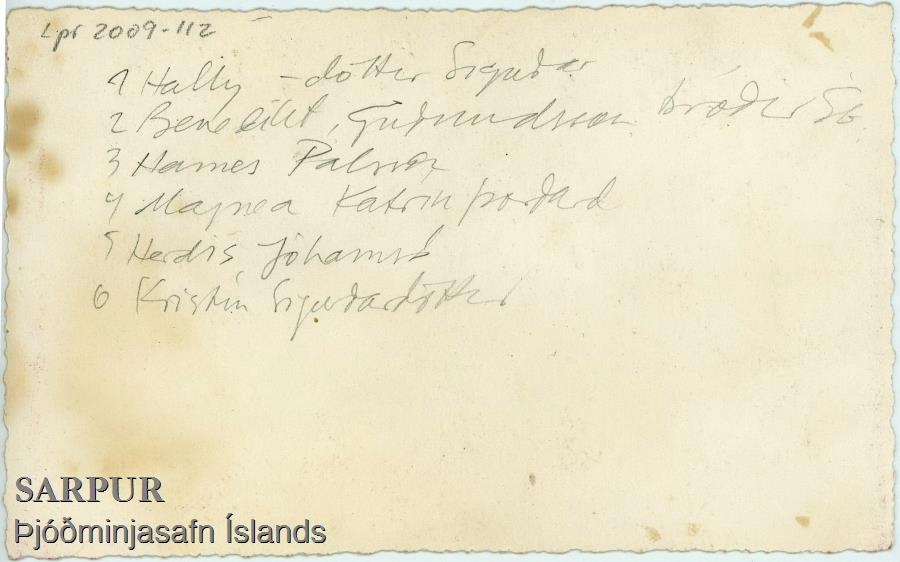 Lpr 2009-112
1 Hally - dóttir Sigurðar
2 Benedikt, Guðmundsson bróðir
3 Hannes Pálsson
4 Magnea Katrín Þórðard
5 Herdís Jóhannsd
6 Kristín Sigurðardóttir
SARPUR
Þjóðminjasafn Íslands